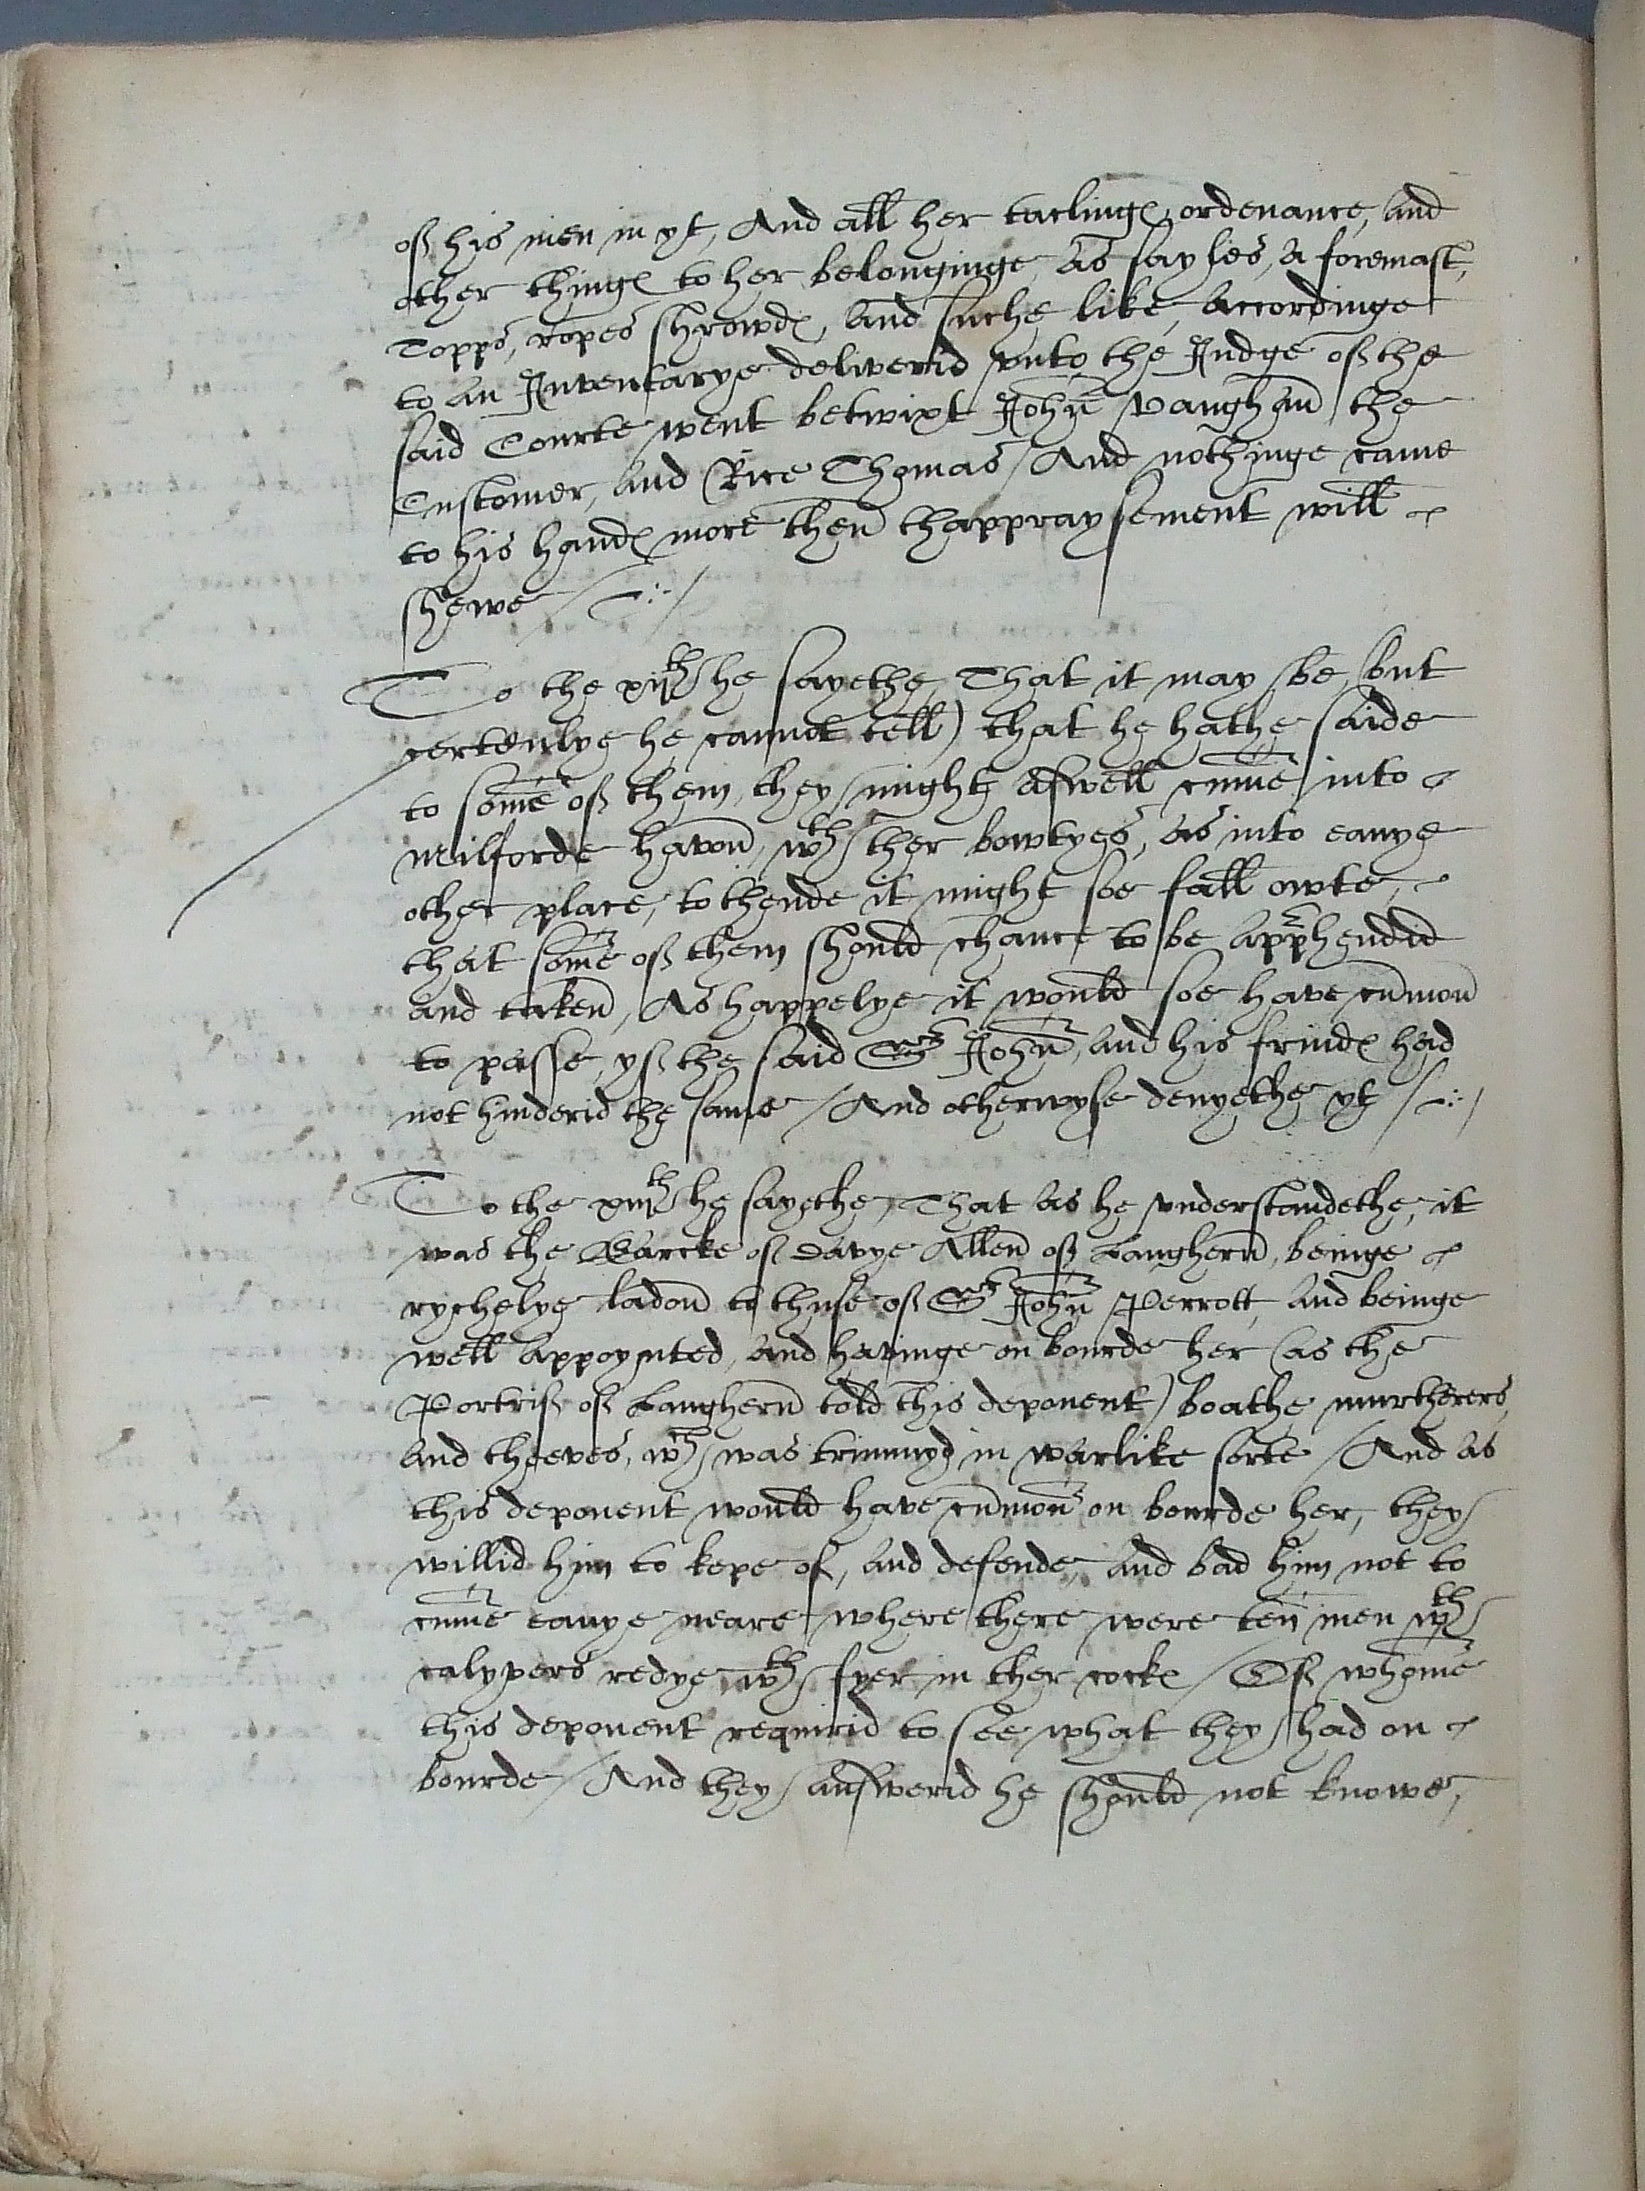 of his men in yt, And all her tacklinges, ordenance, and
other thinges to her belonginge, as sayles, a foremast,
Topps, ropes shrowdes, and suche like, accordinge
to an Inventarye deliverid vnto the Judge of the
said Courte went betwixt John Vaughan the
Customer, and Rice Thomas / And nothinge came
to his handes more then thappraysement will
shewe /
To the xijth he sayethe, That it may be (but
certenlye he cannot tell) that he hathe saide
to some of them, they might aswell cume into
Milforde havon, wth ther bowtyes, as into eanye
other place, to thende it might soe fall owte,
that some of them should chance to be apprhendid
and taken, As happelye it would soe have cumon
to passe, yf the said Sr John, and his frindes had
not hinderid the same / And otherwyse denyethe yt /
To the xiijth he sayethe, That as he vnderstandethe, it
was the Barcke of Davye Allen of Laughern, beinge
rychelye ladon to thuse of Sr John Perrott, and beinge
well appoynted, and havinge on bourde her (as the
Portrif of Laughern told this deponent) boathe murtherers,
and theeves, wch was trimmyd in warlike sorte / And as
this deponent would have cumon on bourde her, they
willid him to kepe of, and defende, and bad him not to
cume eanye neare, where there were ten men wth
calyvers redye wth fyer in ther cockes / Of whome
this deponent requirid to see what they had on
bourde / And they answerid he should not knowe,